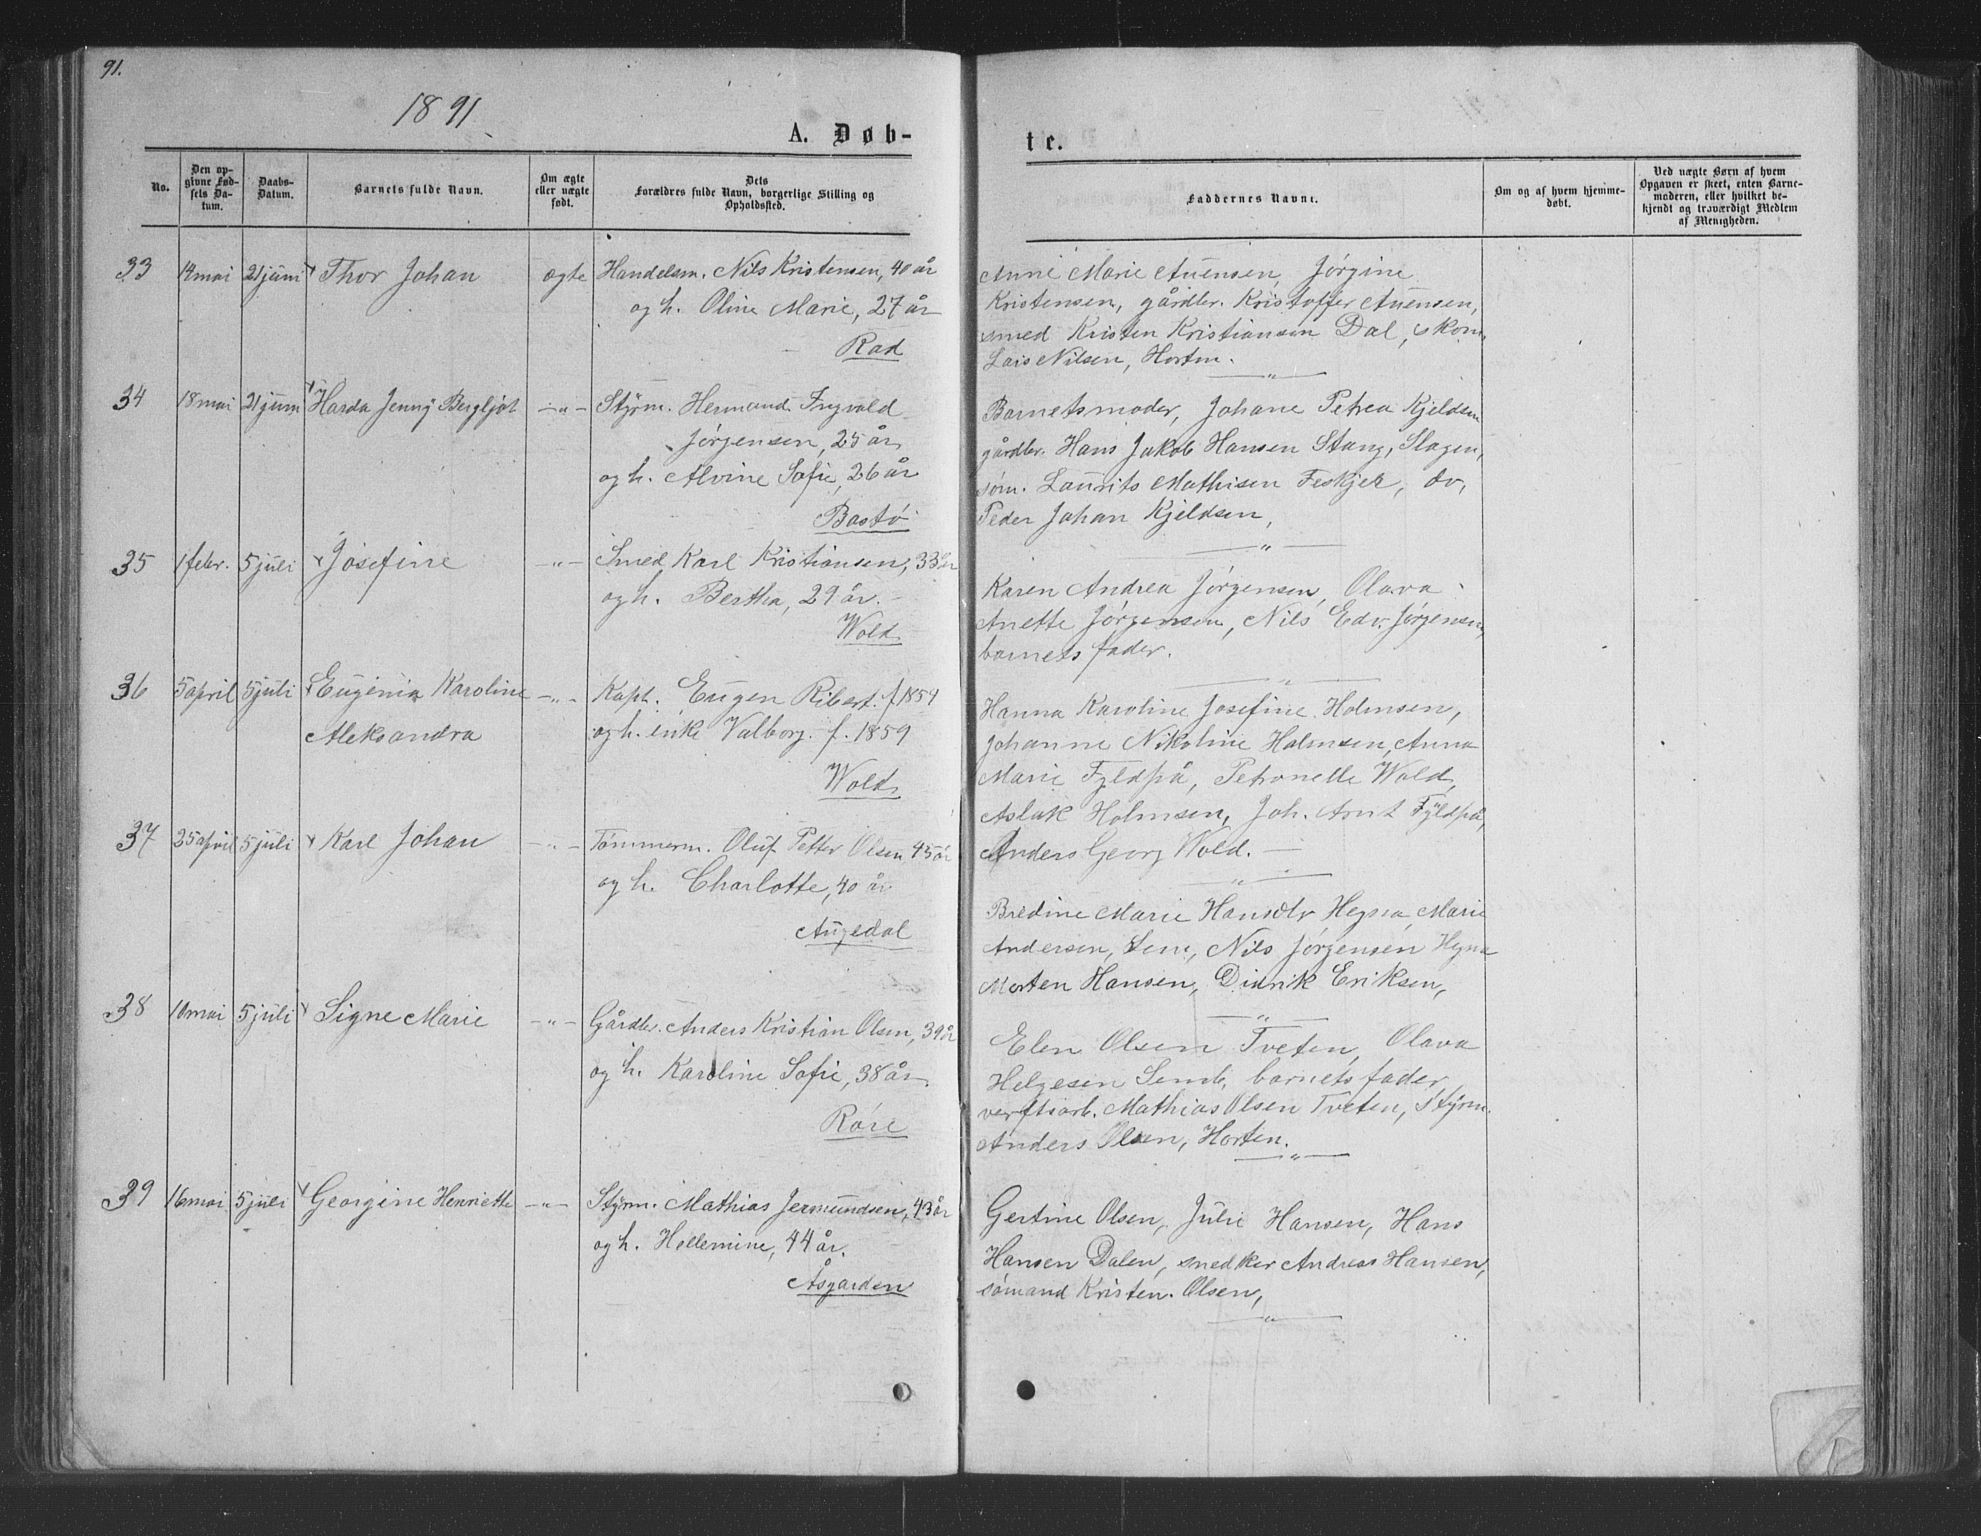 91.
1891
A. Døb-
No.
Den op-
givne Fød-
sels Da-
tum.
Daabs-
Datum.
Barnets fulde Navn.
Om ægte
eller uægte
født.
Dets
Forældres fulde Navn, borgerlige Stilling og
Opholdssted.
33 14 mai 21 juni Thor Johan ægte Handelsm. Nils Kristensen, 40 år
og h. Oline Marie, 27 år
Rød
34 18 mai 21 juni Jenny Bergljot -„- Styrm. Hermand Ingvald
Jørgensen, 25 år
og h. Alvine Sofie, 26 år
Bastø
35 1 febr. 5 juli Josefine -„- Smed Karl Kristiansen, 33 år
og h. Bertha, 29 år.
Wold
36 5 april 5 juli Eugenia Karoline -„- Kapt. Eugen Ribert f 1854
Aleksandra og h. enke Valborg. f. 1859
Wold
37 25 april 5 juli Karl Johan -„- Tømmerm. Oluf Petter Olsen 45 år
og h. Charlotte, 40 år
Augedal
38 10 mai 5 juli Signe Marie -„- Gårdbr. Anders Kristian Olsen, 39 år
og h. Karoline Sofie, 38 år
Røre
39 16 mai 5 juli Georgine Henriette -„- Styrm. Mathias Jermundsen, 43 år
og h. Hellemine, 44 år.
Åsgarden
te.
Faddernes Navne.
Om og af hvem hjemme-
døbt.
Ved uægte Børn af hvem
Opgaven er skeet, enten Barne-
moderen, eller hvilket be-
kjendt og troværdigt Medlem
af Menigheden.
Anne Marie Auensen, Jørgine
Kristensen, gårdbr. Kristoffer Auensen,
smed Kristen Kristiansen Dal, skom.
Lars Nilsen, Horten.
-„-
Barnets moder, Johane Petrea Kjeldsen
gårdbr. Hans Jakob Hansen Stang, Slagen,
søm. Laurits Mathisen Feskjer, do,
Peder Johan Kjeldsen,
-„-
Karen Andrea Jørgensen, Olava
Anette Jørgensen, Nils Edv. Jørgensen,
barnets fader.
-„-
Hanna Karoline Josefine Holmsen,
Johanne Nikoline Holmsen, Anna
Marie Fyldpå, Petronelle Wold,
Aslak Holmsen, Joh. Arnt Fyldpå,
Anders Georg Wold.
-„-
Bredine Marie Hansdtr Marie
Andersen, Sem, Nils Jørgensen
Morten Hansen, Didrik Eriksen,
-„-
Elen Olsen Tveten, Olava
Helgesen Semb, barnets fader,
verftsarb. Mathias Olsen Tveten, Styrm.
Anders Olsen, Horten.
-„-
Gertine Olsen, Julie Hansen, Hans
Hansen Dalen, snedker Andreas Hansen,
sømand Kristen Olsen,
-„-